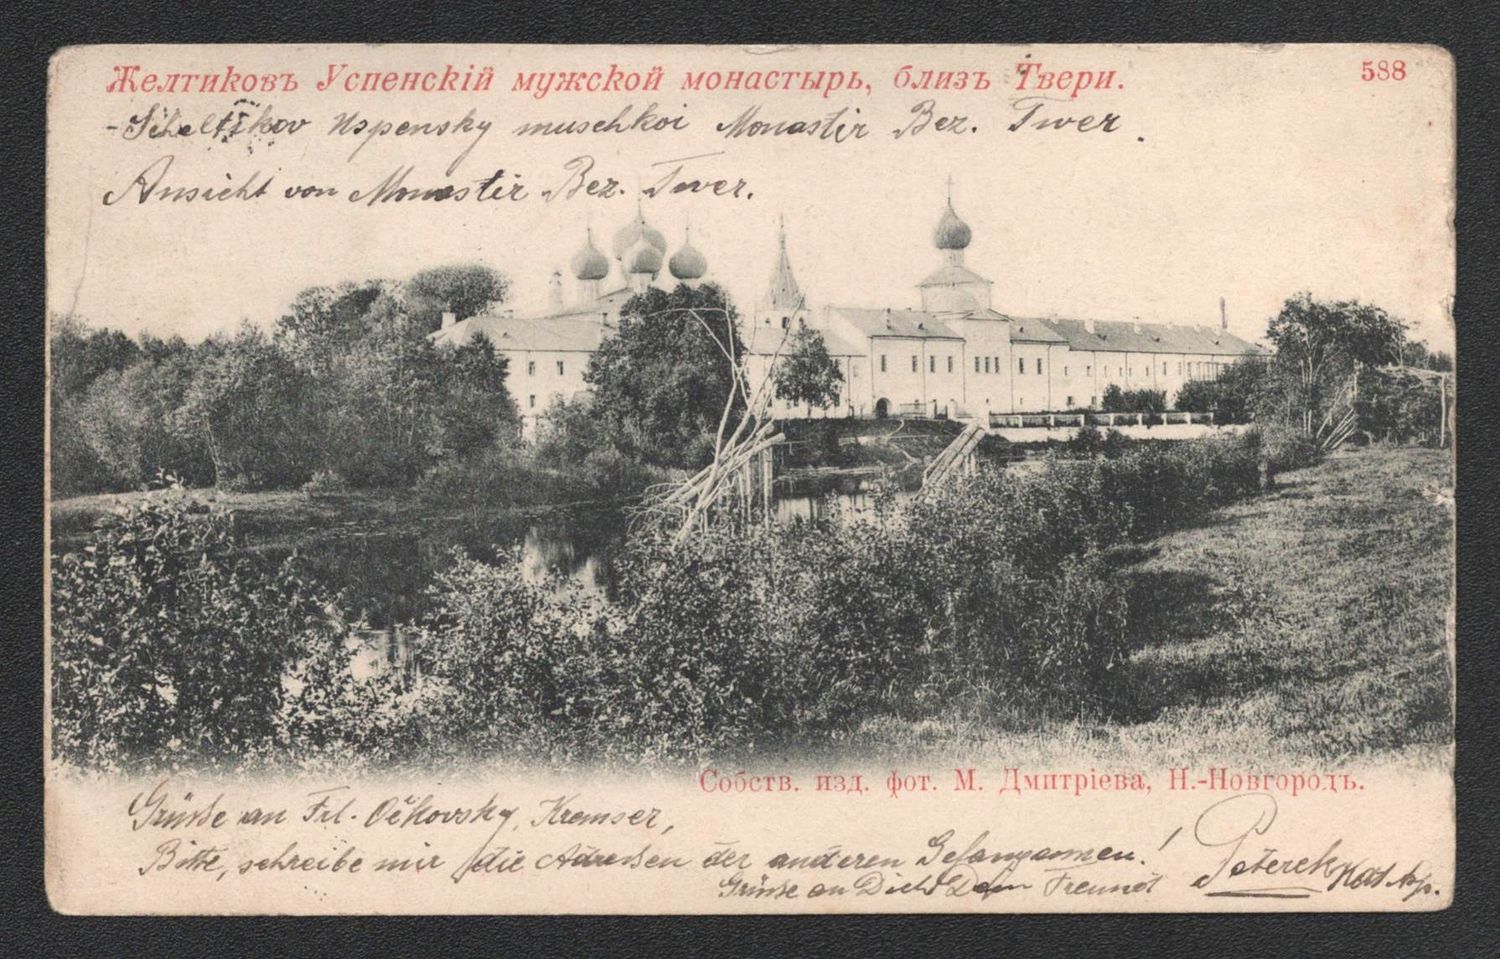 Желтиковъ Успенскій мужской монастырь, близъ Твери.
588
Scheltikov Uspensky muschkoi Monastir Bez. Twer.
Ansicht von Monastir Bez. Twer.
Собств. изд. фот. М. Дмитріева, Н.-Новгородъ.
Grüsse an Frl. Očkovsky, Kremser,
Bitte, schreibe mir die Adressen der anderen Gefangenen!
Grüsse an Dich Dein Freund
Peterek